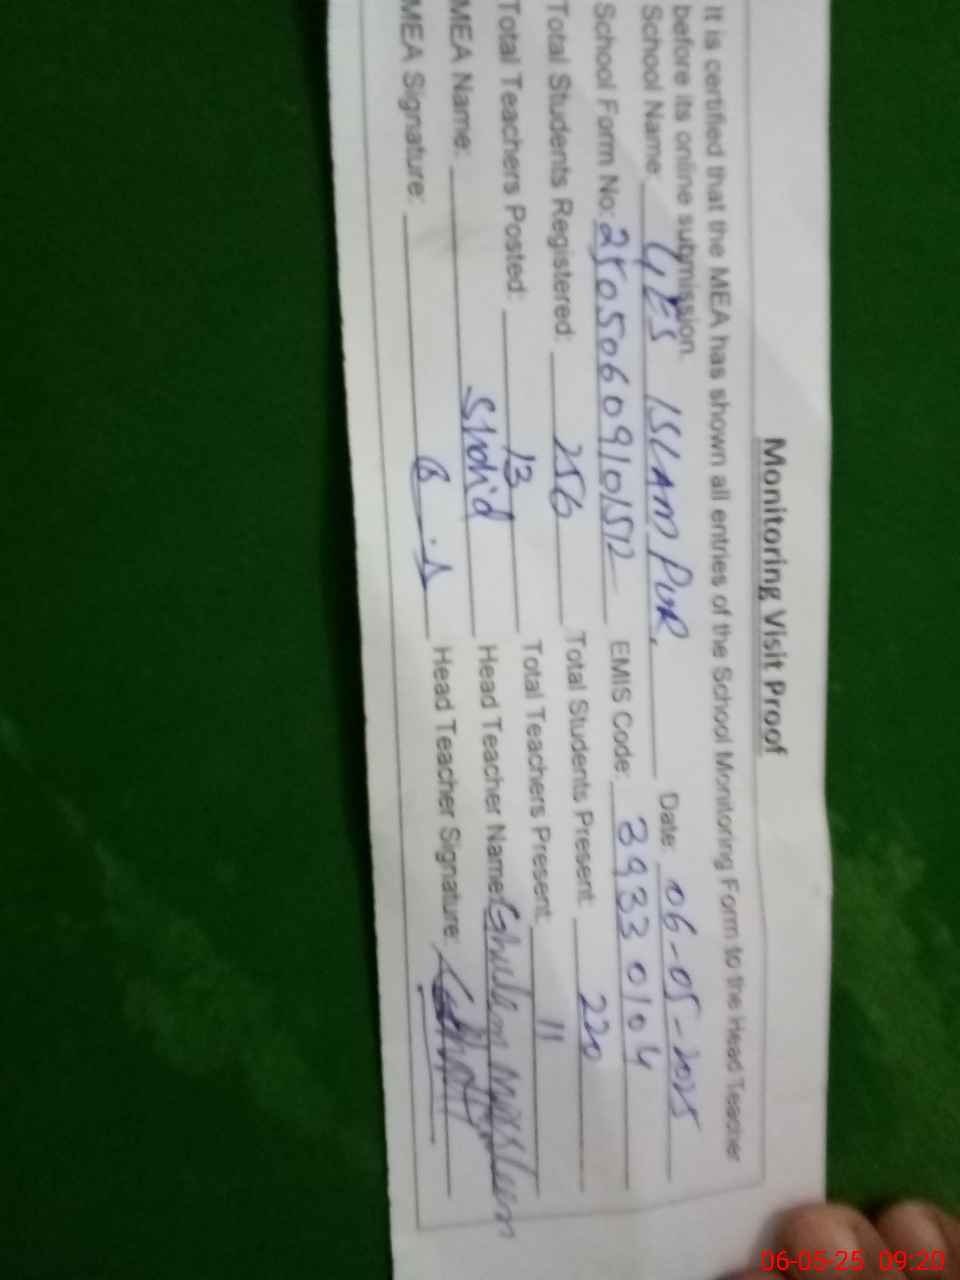 Monitoring Visit Proof
It is certified that the MEA has shown all entries of the School Monitoring Form to the Head Teacher
before its online submission.
School Name: GES ISLAM PUR. Date: 06-05-2025
School Form No: 2505060910152 EMIS Code: 39330104
Total Students Registered: 256 Total Students Present: 220
Total Teachers Posted: 13 Total Teachers Present: 11
MEA Name: Shahid Head Teacher Name: Ghulam
MEA Signature: Head Teacher Signature:
06-05-25 09:20